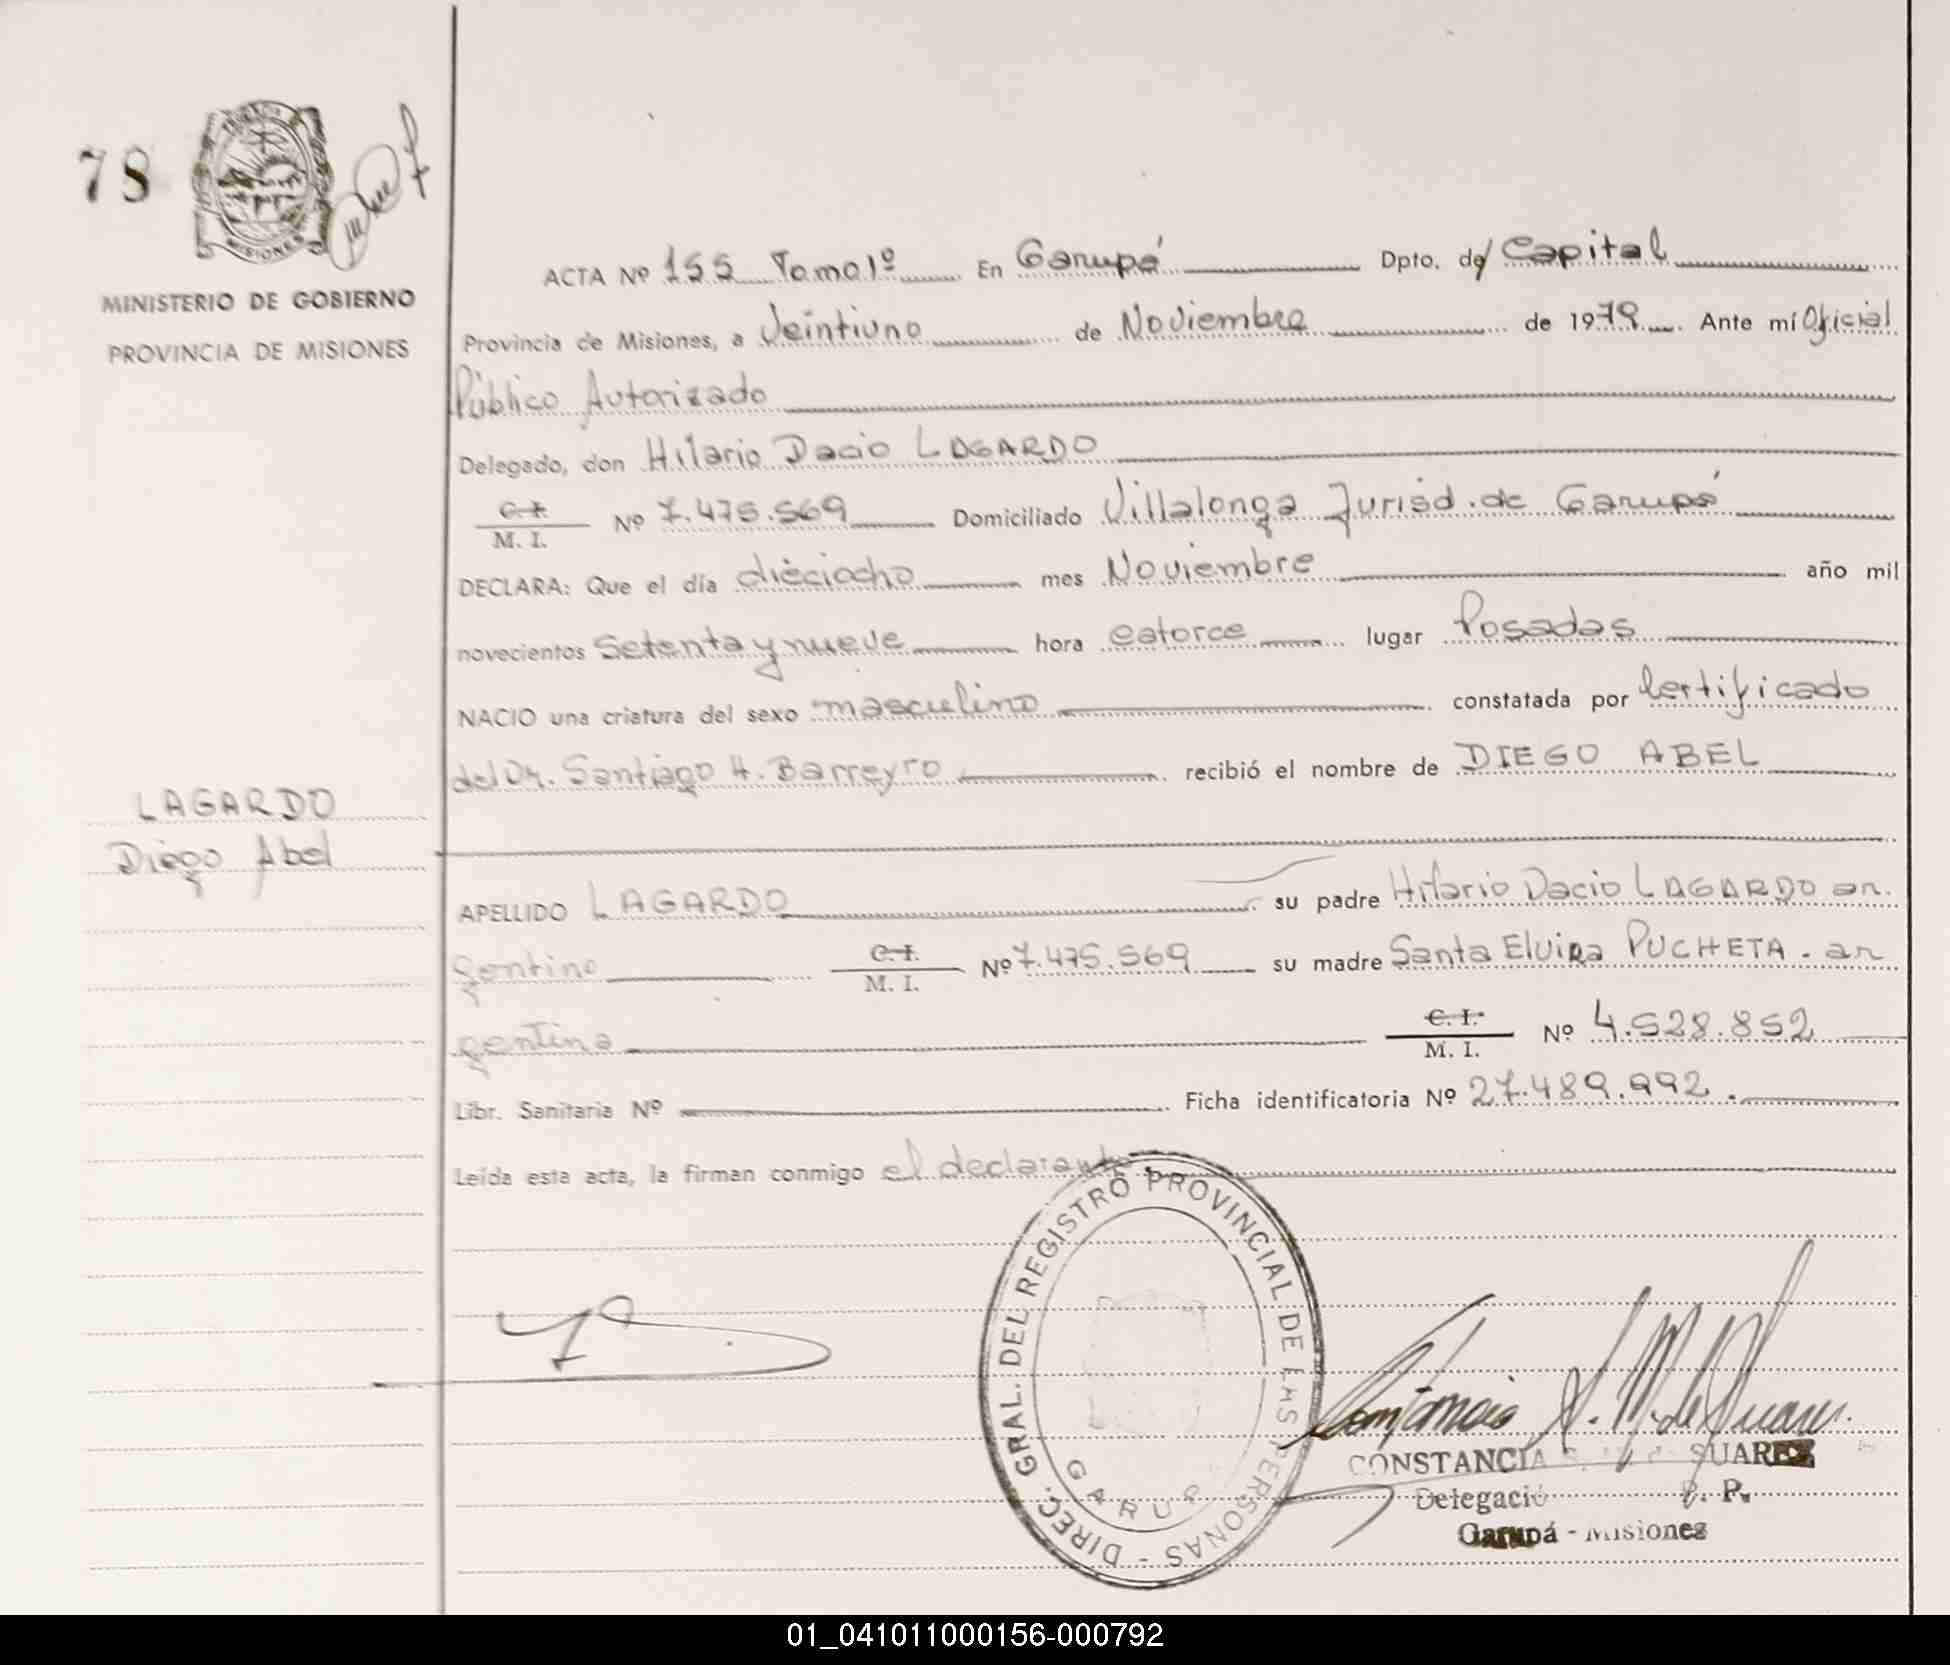 78
MISIONES
MINISTERIO DE GOBIERNO
PROVINCIA DE MISIONES
LAGARDO
Diego Abel
ACTA Nº 155 Tomo 1º En Garupá Dpto. de Capital
Provincia de Misiones, a Veintiuno de Noviembre de 1979. Ante mí Oficial
Público Autorizado
Delegado, don Hilario Dacio LAGARDO
C. I.
M. I. Nº 7.475.569 Domiciliado Villalonga Jurisd. de Garupá
DECLARA: Que el día dieciocho mes Noviembre año mil
novecientos Setenta y nueve hora catorce lugar Posadas
NACIO una criatura del sexo masculino constatada por Certificado
del Dr. Santiago H. Barreyro recibió el nombre de DIEGO ABEL
APELLIDO LAGARDO su padre Hilario Dacio LAGARDO ar.
gentino C. I. M. I. Nº 7.475.569 su madre Santa Elvira PUCHETA . ar
gentina C. I. M. I. Nº 4.528.852
Libr. Sanitaria Nº Ficha identificatoria Nº 27.489.992.
Leída esta acta, la firman conmigo el declarante
DIREC. GRAL. DEL REGISTRO PROVINCIAL DE LAS PERSONAS -
GARUP
CONSTANCIA S. SUAREZ
Delegació R. P.
Garupá - Misiones
01_041011000156-000792